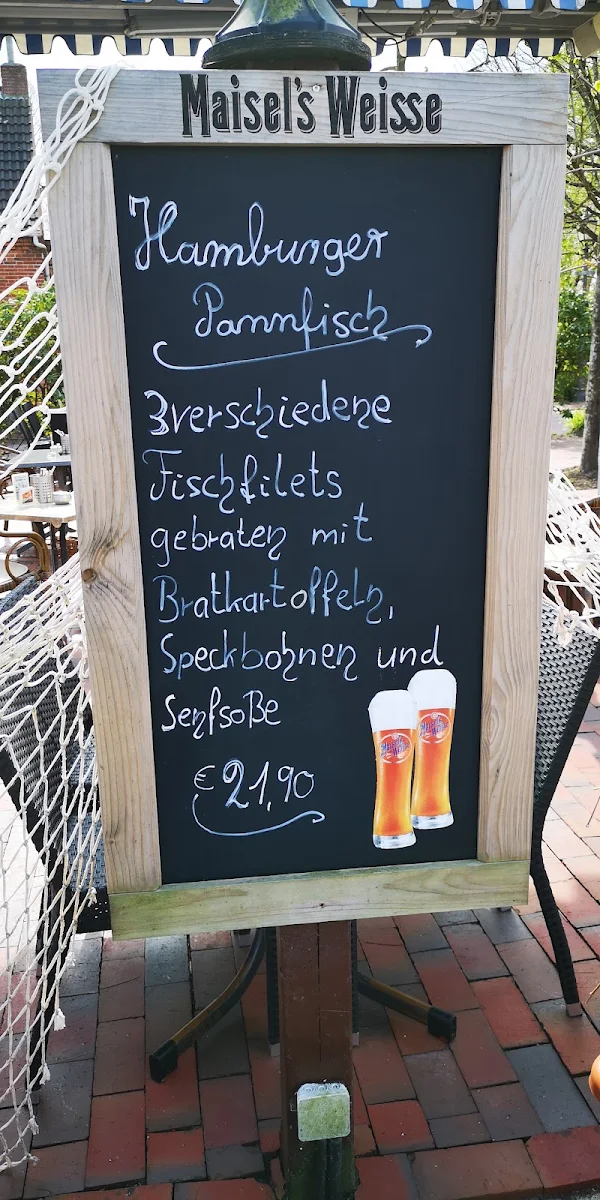 Maisel's Weisse
Hamburger
Pannfisch
3verschiedene
Fischfilets
gebraten mit
Bratkartoffeln,
Speckbohnen und
Senfsoße
€21,90